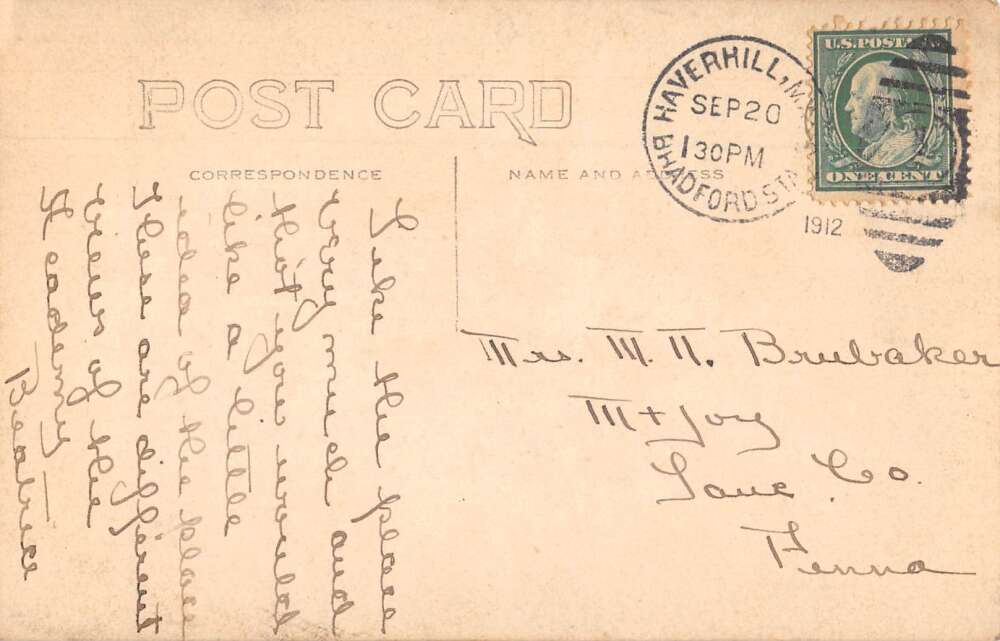 POST CARD
CORRESPONDENCE
NAME AND ADDRESS
HAVERHILL, M
SEP 20
1 30 PM
1912
BRADFORD STA
U.S. POST
ONE CENT
Like the place
very much and
thot you would
like a little
idea of the place
These are different
views of the
Academy
Beatrice
Mrs. M. N. Brubaker
Mt Joy
Lanc. Co.
Penna